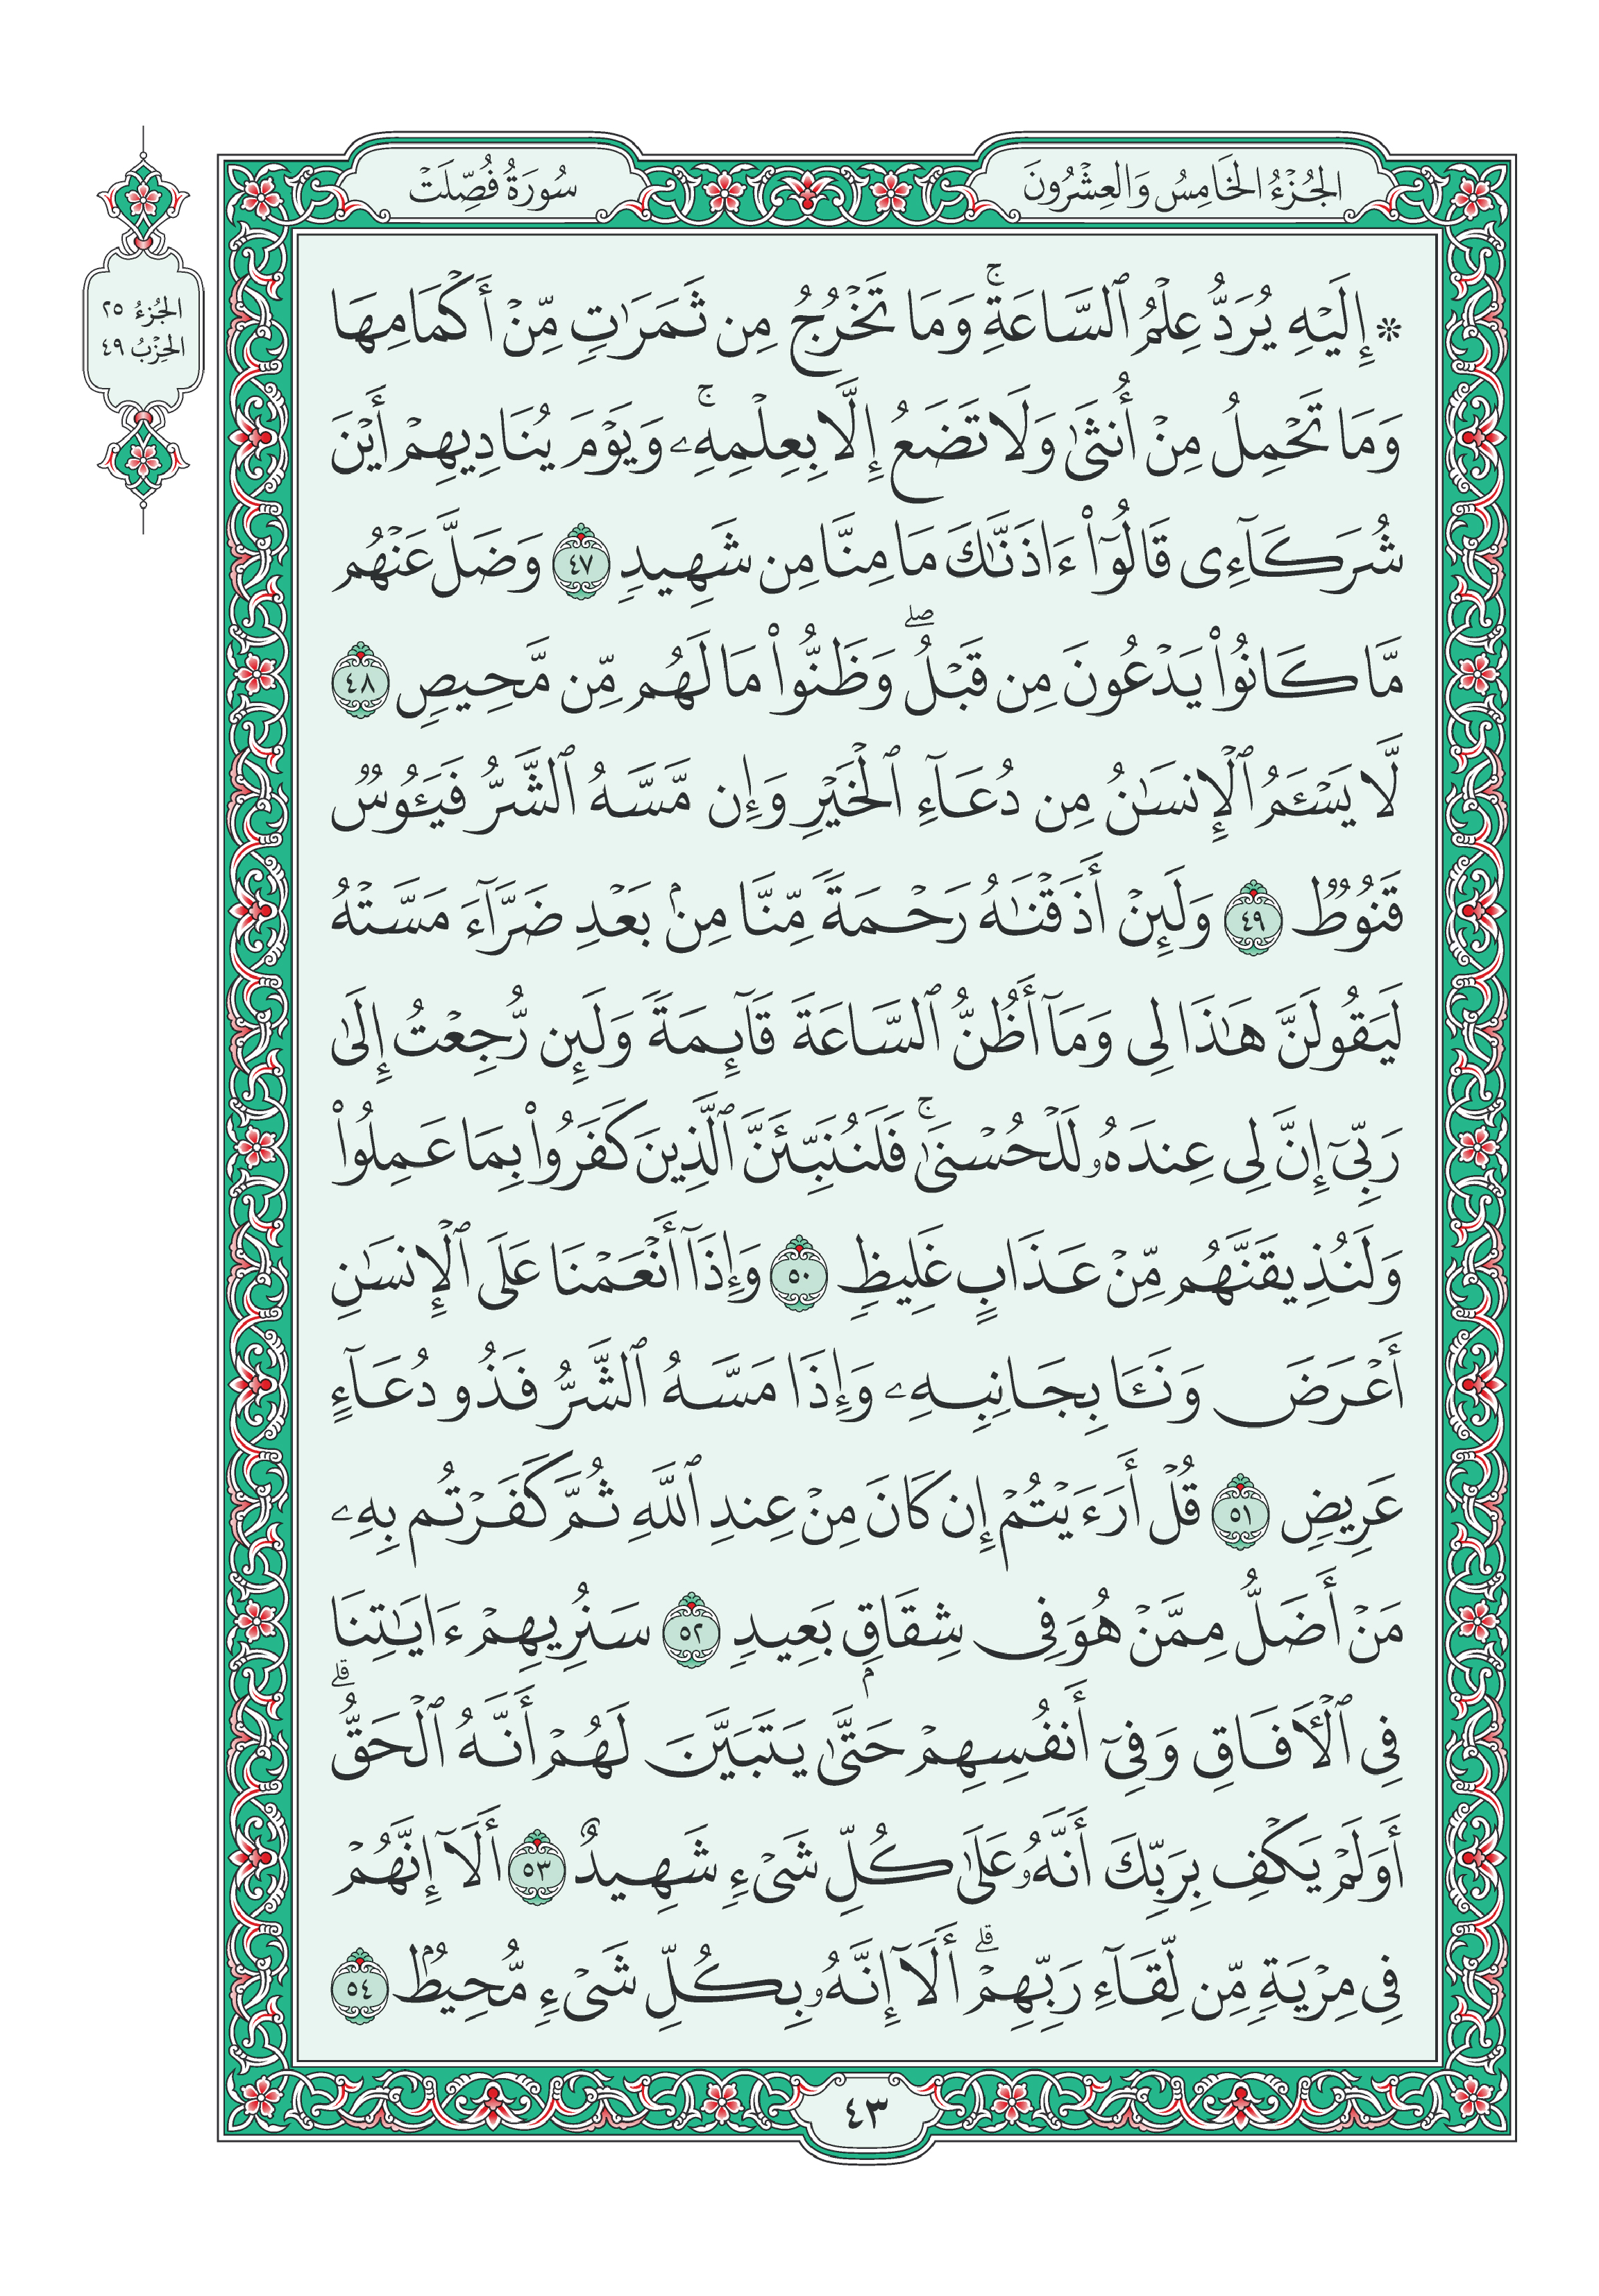 الجُزْءُ الخَامِسُ وَالعِشْرُونَ
سُورَةُ فُصِّلَتْ
الجُزْءُ ٢٥
الحِزْبُ ٤٩
۞ إِلَيْهِ يُرَدُّ عِلْمُ ٱلسَّاعَةِۚ وَمَا تَخْرُجُ مِن ثَمَرَٰتٍ مِّنْ أَكْمَامِهَا
وَمَا تَحْمِلُ مِنْ أُنثَىٰ وَلَا تَضَعُ إِلَّا بِعِلْمِهِۦۚ وَيَوْمَ يُنَادِيهِمْ أَيْنَ
شُرَكَآءِى قَالُوٓا۟ ءَاذَنَّٰكَ مَا مِنَّا مِن شَهِيدٍ ٤٧ وَضَلَّ عَنْهُم
مَّا كَانُوا۟ يَدْعُونَ مِن قَبْلُۖ وَظَنُّوا۟ مَا لَهُم مِّن مَّحِيصٍ ٤٨
لَّا يَسْـَٔمُ ٱلْإِنسَٰنُ مِن دُعَآءِ ٱلْخَيْرِ وَإِن مَّسَّهُ ٱلشَّرُّ فَيَـُٔوسٌ
قَنُوطٌ ٤٩ وَلَئِنْ أَذَقْنَٰهُ رَحْمَةً مِّنَّا مِنۢ بَعْدِ ضَرَّآءَ مَسَّتْهُ
لَيَقُولَنَّ هَٰذَا لِى وَمَآ أَظُنُّ ٱلسَّاعَةَ قَآئِمَةً وَلَئِن رُّجِعْتُ إِلَىٰ
رَبِّىٓ إِنَّ لِى عِندَهُۥ لَلْحُسْنَىٰۚ فَلَنُنَبِّئَنَّ ٱلَّذِينَ كَفَرُوا۟ بِمَا عَمِلُوا۟
وَلَنُذِيقَنَّهُم مِّنْ عَذَابٍ غَلِيظٍ ٥٠ وَإِذَآ أَنْعَمْنَا عَلَى ٱلْإِنسَٰنِ
أَعْرَضَ وَنَـَٔا بِجَانِبِهِۦ وَإِذَا مَسَّهُ ٱلشَّرُّ فَذُو دُعَآءٍ
عَرِيضٍ ٥١ قُلْ أَرَءَيْتُمْ إِن كَانَ مِنْ عِندِ ٱللَّهِ ثُمَّ كَفَرْتُم بِهِۦ
مَنْ أَضَلُّ مِمَّنْ هُوَ فِى شِقَاقٍۭ بَعِيدٍ ٥٢ سَنُرِيهِمْ ءَايَٰتِنَا
فِى ٱلْـَٔافَاقِ وَفِىٓ أَنفُسِهِمْ حَتَّىٰ يَتَبَيَّنَ لَهُمْ أَنَّهُ ٱلْحَقُّۗ
أَوَلَمْ يَكْفِ بِرَبِّكَ أَنَّهُۥ عَلَىٰ كُلِّ شَىْءٍ شَهِيدٌ ٥٣ أَلَآ إِنَّهُمْ
فِى مِرْيَةٍ مِّن لِّقَآءِ رَبِّهِمْۗ أَلَآ إِنَّهُۥ بِكُلِّ شَىْءٍ مُّحِيطٌۢ ٥٤
٤٣